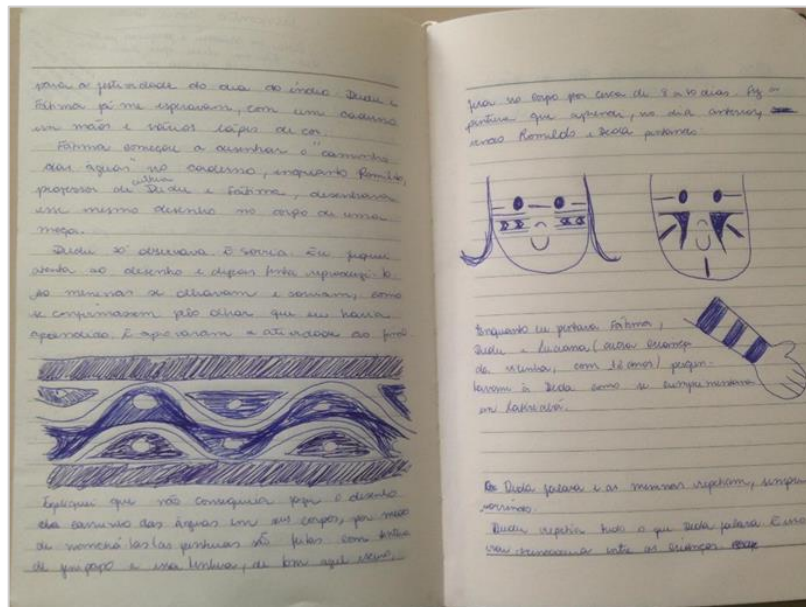 para a festividade do dia do índio. Dudu e
Fátima já me esperavam, com um caderno
em mãos e vários lápis de cor.
Fátima começou a desenhar o "caminho
das águas" no caderno, enquanto Romildo,
professor de cultura Dudu e Fátima, desenhava
esse mesmo desenho no corpo de uma
moça.
Dudu só observava. E sorria. Eu fiquei
atenta ao desenho e depois tentei reproduzi-lo.
As meninas se olhavam e sorriam, como
se confirmassem pelo olhar que eu havia
aprendido. E apoiaram a atividade ao final.
Expliquei que não conseguiria fazer o desenho
do caminho das águas em seus corpos, por medo
de manchá-las (as pinturas são feitas com tinta
de jenipapo e essa tintura, de tom azul escuro,
fica no corpo por cerca de 8 a 10 dias. Fiz a
pintura que aprendi, no dia anterior,
vendo Romildo e Deda pintarem.
Enquanto eu pintava Fátima,
Dudu e Luciana (outra criança
da escolinha, com 12 anos) pergun-
tavam à Deda como se cumprimentava
em
Deda falava e as meninas repetiam, sempre
sorrindo.
Dudu repetia tudo o que Deda falava. E essa
entre as crianças